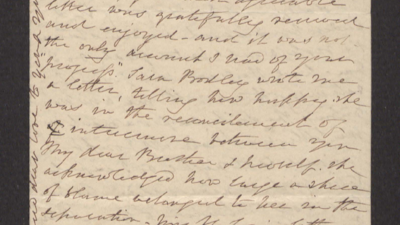 letter was gratefully received
and enjoyed - and it was not
the only account I had of your
"progress" Sara Bradley wrote me
a letter, telling how happy she
was in the reconcilement of
& intercourse between you
My dear Brother & herself. She
acknowledged how large a share
of blame belonged to her in the
separation -